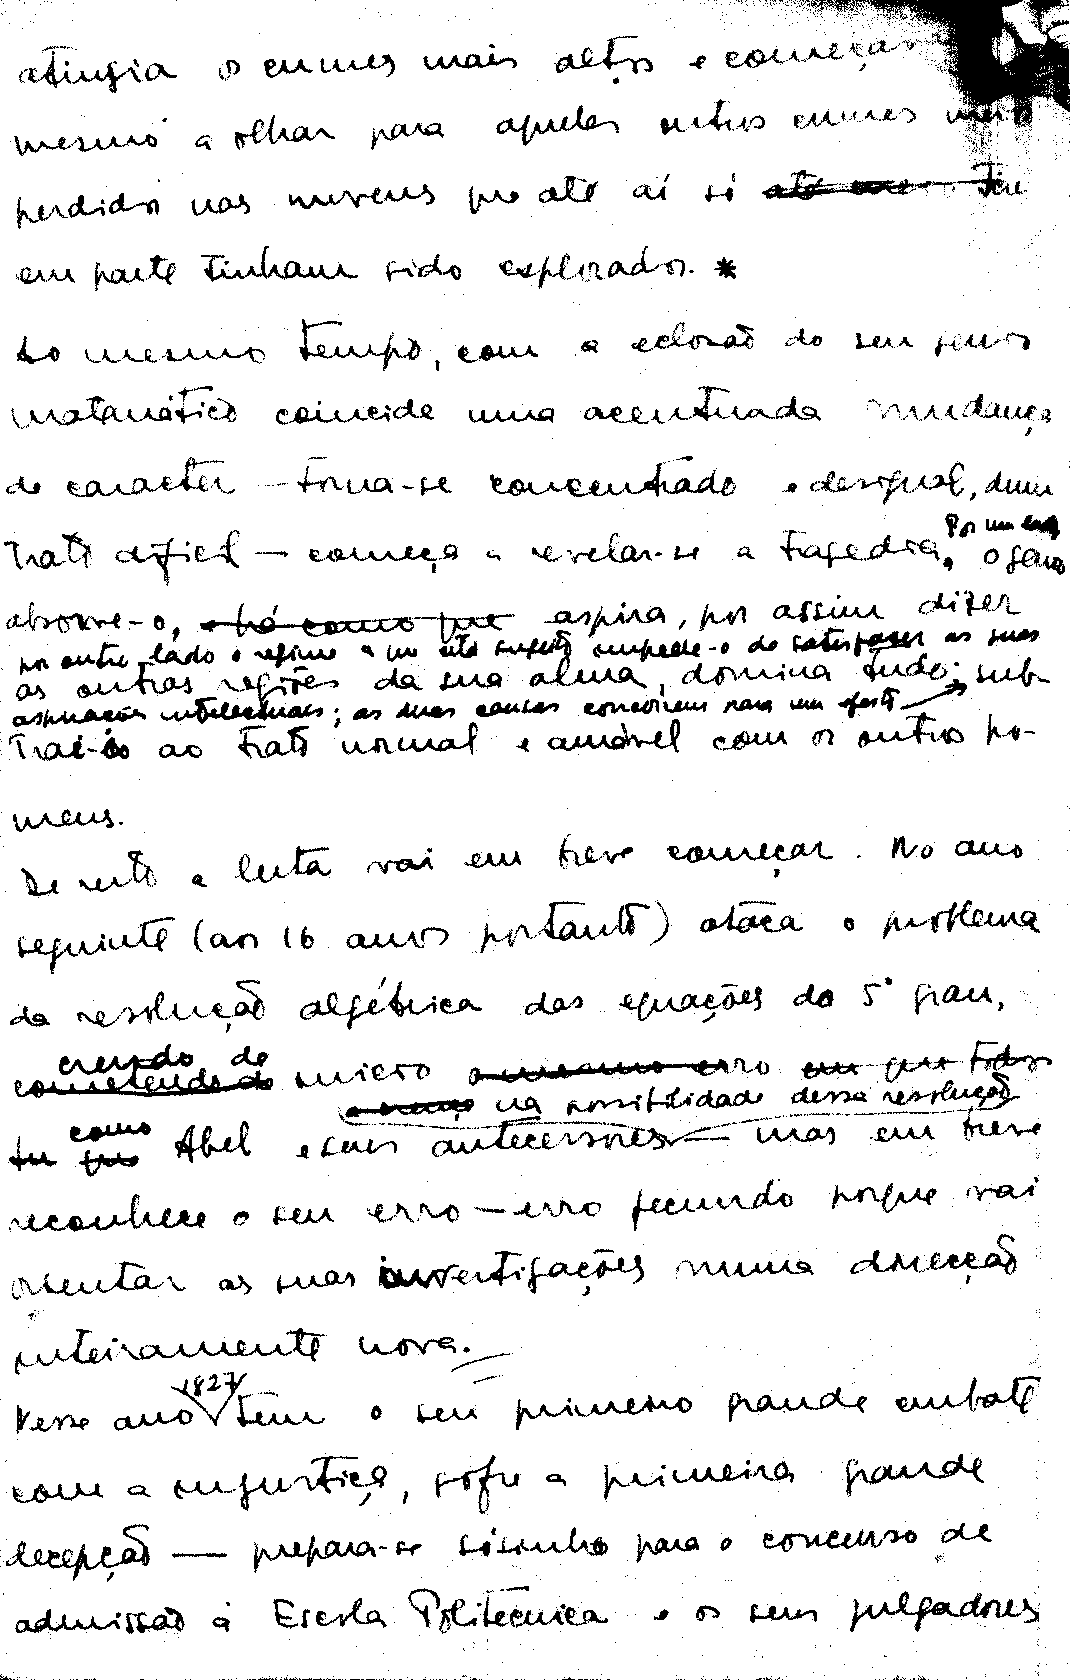 atingia os cumes mais altos e começava
mesmo a olhar para aqueles outros cumes meio
perdidos nas nuvens que até aí só
em parte tinham sido explorados. *
Ao mesmo tempo, com a eclosão do seu genio
matemático coincide uma acentuada mudança
de caracter – torna-se concentrado e desigual, dum
trato dificil – começa a revelar-se a tragedia. Por um lado o genio
absorve-o, e há como que aspira, por assim dizer
por outro lado o regime a que está sujeito impede-o de satisfazer as suas
as outras regiões da sua alma, domina tudo; sub-
aspirações intelectuais; as duas causas concorrem para um efeito
trai-o ao trato normal e amável com os outros ho-
mens.
De resto a luta vai em breve começar. No ano
seguinte (aos 16 anos portanto) ataca o problema
da resolução algébrica das equações do 5° grau,
crendo de
cometendo de inicio o mesmo erro em que todos
na possibilidade dessa resolução
como
Abel e seus antecessores – mas em breve
reconhece o seu erro – erro fecundo porque vai
orientar as suas investigações numa direcção
inteiramente nova.
1827
Nesse ano tem o seu primeiro grande embate
com a injustiça, sofre a primeira grande
decepção – prepara-se sósinho para o concurso de
admissão á Escola Politécnica e os seus julgadores